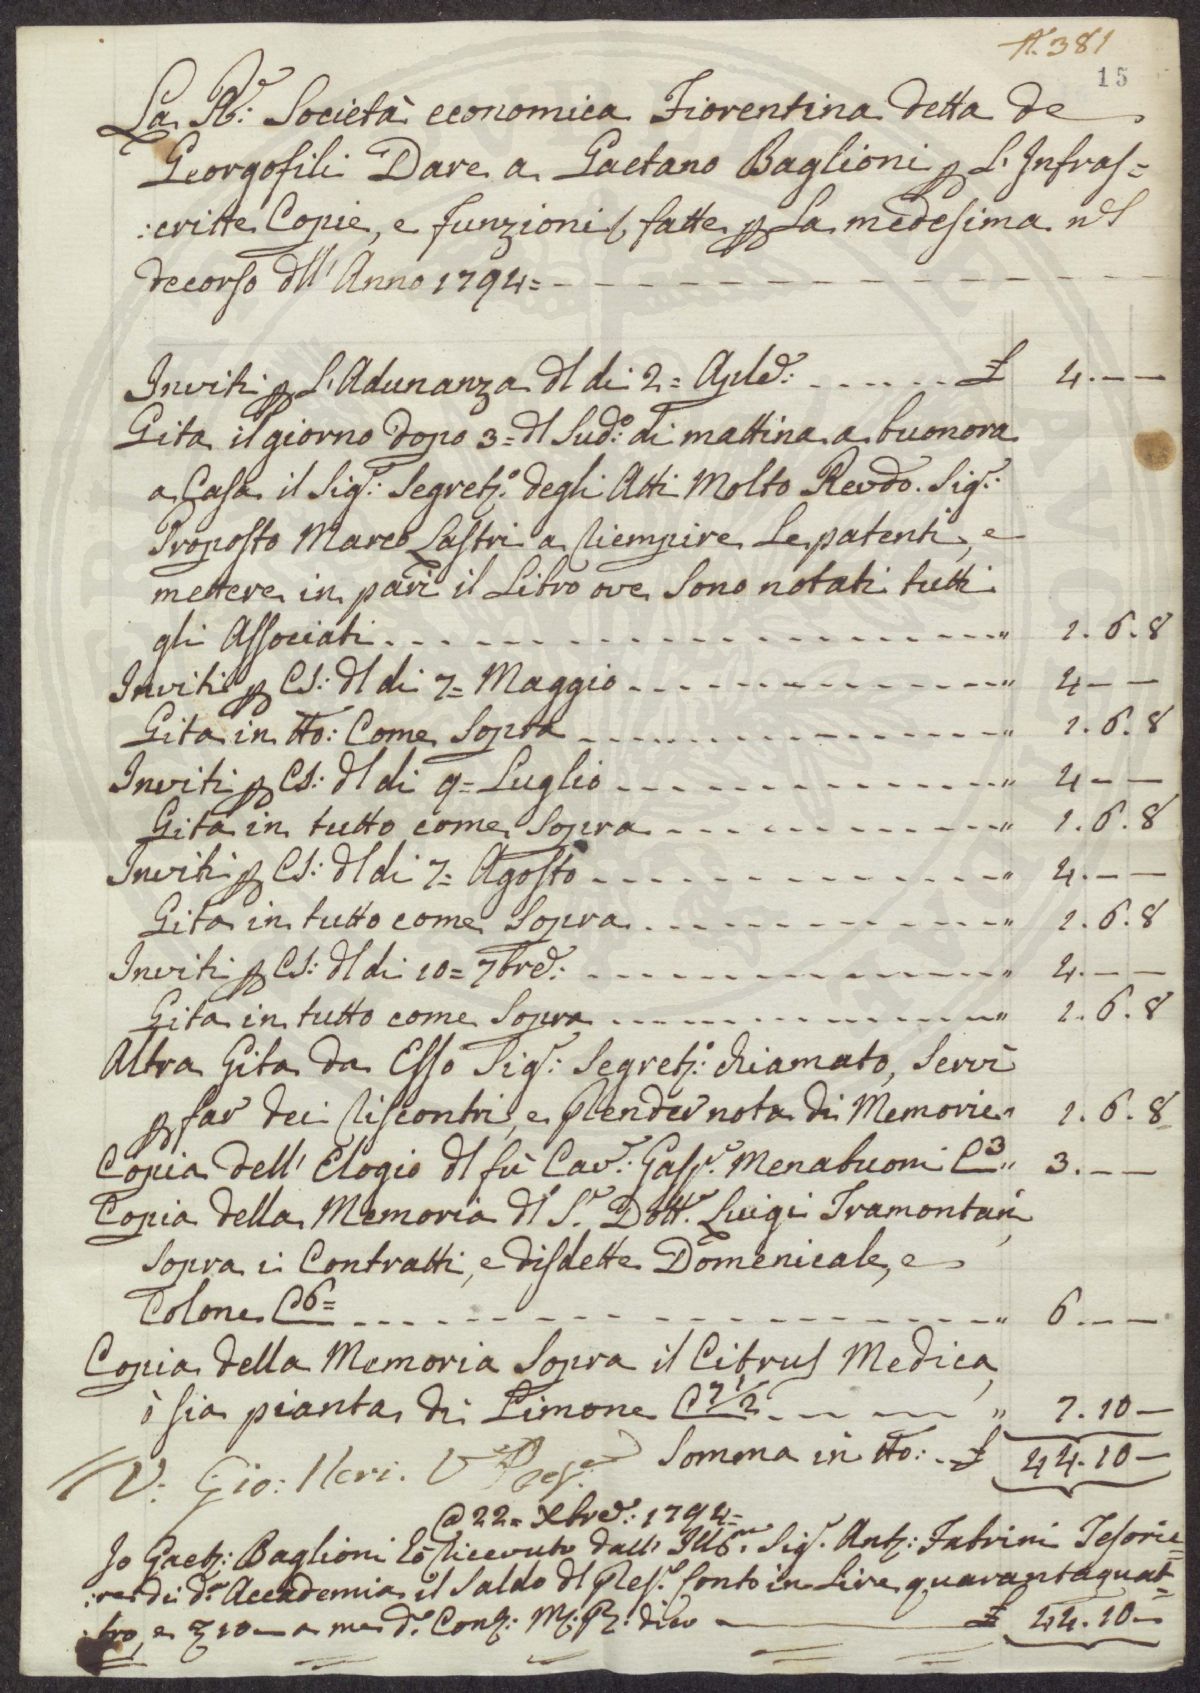 N. 381
15
La R.: Società economica Fiorentina detta de
Georgofili Dare a Gaetano Baglioni p L'Infras=
:critte Copie, e funzioni fatte p La medesima nel
decorso dell' Anno 1794=
Inviti p L'Adunanza del di 2= Aple: £ 4.--
Gita il giorno dopo 3= del Sud.o: di mattina a buonora
a Casa il Sig.r: Segret.o: degli Atti Molto Revdo. Sig.r:
Proposto Marco Lastri a riempire Le patenti, e
mettere in pari il Libro ove Sono notati tutti
gli Associati " 1.6.8
Inviti p Cs: del di 7= Maggio " 4--
Gita in tto: Come Sopra " 1.6.8
Inviti p Cs: del di 9= Luglio " 4--
Gita in tutto come Sopra " 1.6.8
Inviti p Cs: del di 7= Agosto " 4.--
Gita in tutto come Sopra " 1.6.8
Inviti p Cs: del di 10= 7bre: " 4.--
Gita in tutto come Sopra " 1.6.8
Altra Gita da Esso Sig.r: Segret.o: chiamato, Servì
p far dei riscontri, e prender nota di Memorie " 1.6.8
Copia dell' Elogio del fù Cav.r: Gasp.r Menabuoni C 3 " 3.--
Copia della Memoria del S.r Dott.r Luigi Tramontani,
Sopra i Contratti, e disdette Domenicale, e
Colone C 6= " 6.--
Copia della Memoria Sopra il Citrus Medica,
ò sia pianta di Limone C 7 1/2 " 7.10-
Somma in tto: £ 44.10-
V: Gio: Neri. V Pres.e
@ 22= Xbre: 1794=
Io Gaet.: Baglioni hò ricevuto dall' Ill.mo Sig.r Ant.: Fabrini Tesorie=
:re di d.a Accademia il Saldo del Pres.e Conto in Lire quarantaquat=
:tro, e 10- a me d.o Con.: M.: P.: dico £ 44.10-